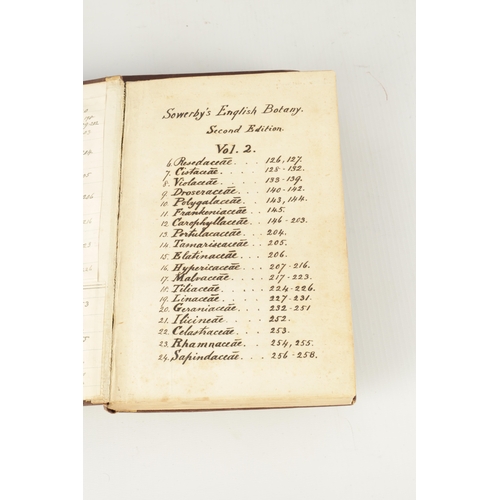 Sowerby's English Botany.
Second Edition.
Vol. 2.
6. Resedaceæ. . . . 126, 127.
7. Cistaceæ. . . . 128-132.
8. Violaceæ. . . . 133-139.
9. Droseraceæ. . . . 140-142.
10. Polygalaceæ. . . 143, 144.
11. Frankeniaceæ. . . 145.
12. Caryophyllaceæ. . . 146-203.
13. Portulacaceæ. . . 204.
14. Tamariscaceæ. . . 205.
15. Elatinaceæ. . . . 206.
16. Hypericaceæ. . . 207-216.
17. Malvaceæ. . . . 217-223.
18. Tiliaceæ. . . . 224-226.
19. Linaceæ. . . . 227-231.
20. Geraniaceæ. . . . 232-251
21. Ilicineæ. . . . 252.
22. Celastraceæ. . . . 253.
23. Rhamnaceæ. . . . 254, 255.
24. Sapindaceæ. . . . 256-258.